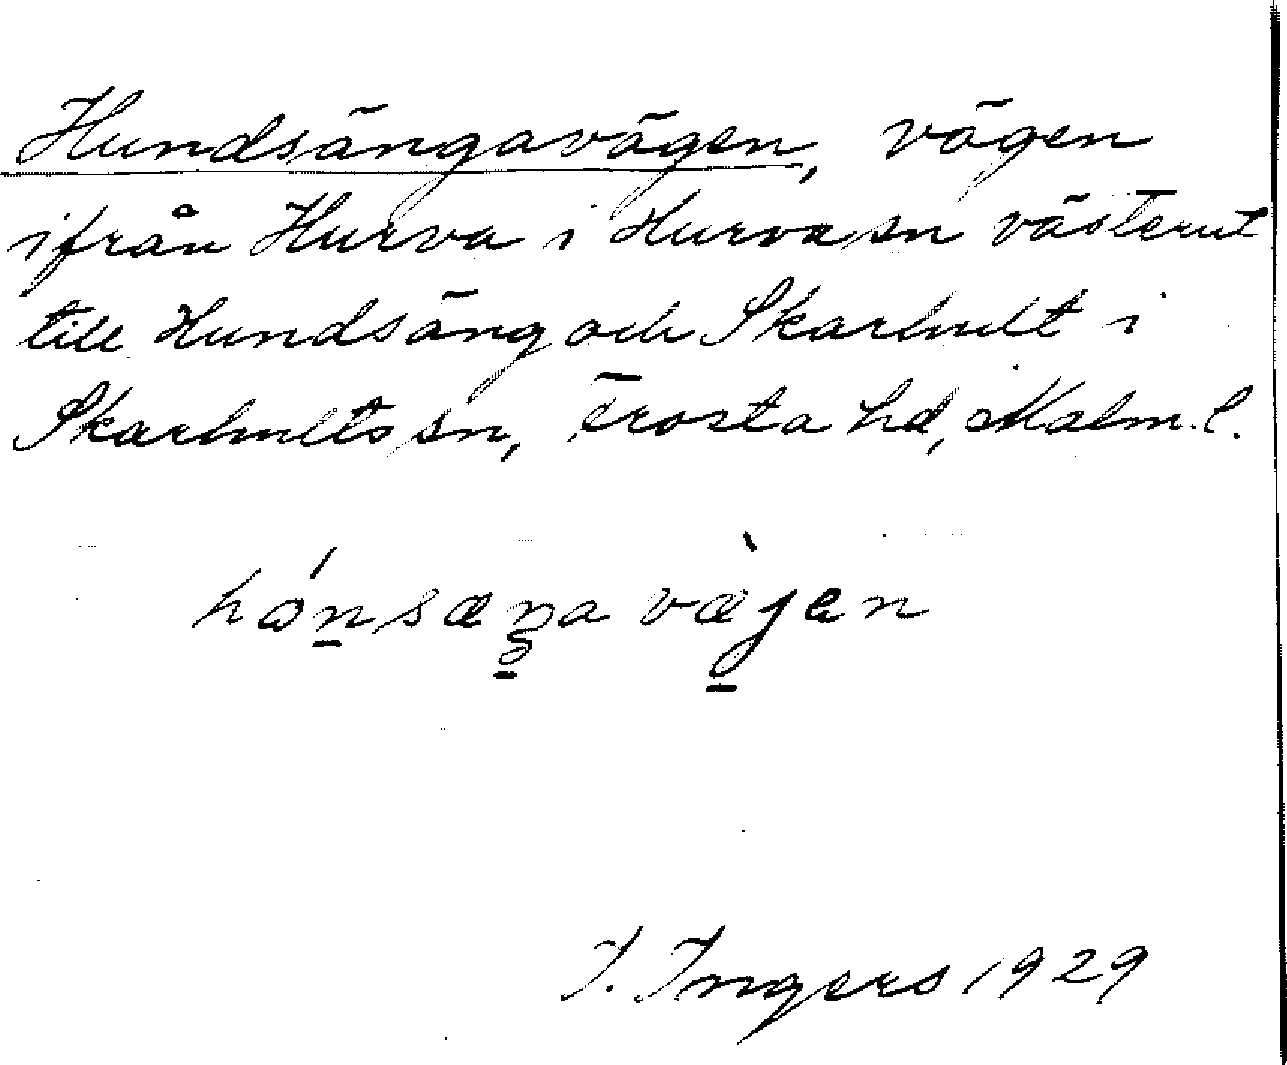 Hundsängavägen, vägen
ifrån Hurva i Hurva sn västerut
till Hundsäng och Skarhult i
Skarhults sn, Frosta hd, Malm. l.
hónsæŋa væ̀jen
I. Ingers 1929